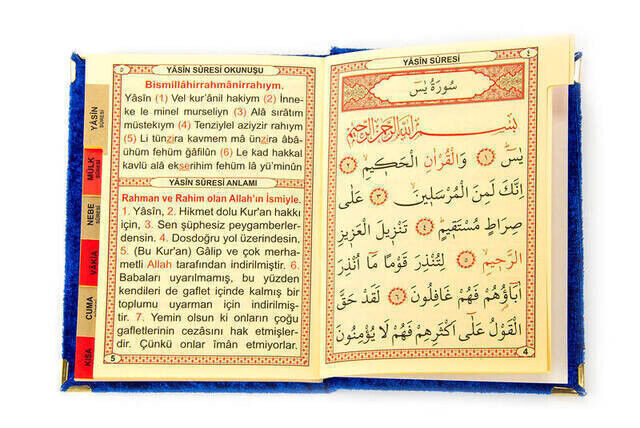 YÂSÎN SÛRESİ OKUNUŞU
Bismillâhirrahmânirrahıym.
Yâsîn (1) Vel kur'ânil hakiym (2) İnne-
ke le minel murseliyn (3) Alâ sırâtım
müstekıym (4) Tenziylel aziyzir rahıym
(5) Li tünzira kavmem mâ ünzira âbâ-
ühüm fehüm ğâfilûn (6) Le kad hakkal
kavlü alâ ekserihim fehüm lâ yü'minûn
YÂSÎN SÛRESİ ANLAMI
Rahman ve Rahim olan Allah'ın ismiyle.
1. Yâsîn, 2. Hikmet dolu Kur'an hakkı
için, 3. Sen şüphesiz peygamberler-
densin. 4. Dosdoğru yol üzerindesin.
5. (Bu Kur'an) Gâlip ve çok merha-
metli Allah tarafından indirilmiştir. 6.
Babaları uyarılmamış, bu yüzden
kendileri de gaflet içinde kalmış bir
toplumu uyarman için indirilmiş-
tir. 7. Yemin olsun ki onların çoğu
gafletlerinin cezasını hak etmişler-
dir. Çünkü onlar îmân etmiyorlar.
5
YÂSİN
SÛRESİ
MÜLK
NEBE
SÛRESİ
VÂKIA
CUMA
KISA
YÂSÎN SÛRESİ
٤
سُورَةُ يٰسٓ
بِسْمِ اللّٰهِ الرَّحْمٰنِ الرَّحِيمِ
يٰسٓ ﴿١﴾ وَالْقُرْاٰنِ الْحَكِيمِ ﴿٢﴾
اِنَّكَ لَمِنَ الْمُرْسَلِينَ ﴿٣﴾ عَلٰى
صِرَاطٍ مُسْتَقِيمٍ ﴿٤﴾ تَنْزِيلَ الْعَزِيزِ
الرَّحِيمِ ﴿٥﴾ لِتُنْذِرَ قَوْمًا مَٓا اُنْذِرَ
اٰبَٓاؤُهُمْ فَهُمْ غَافِلُونَ ﴿٦﴾ لَقَدْ حَقَّ
الْقَوْلُ عَلٰٓى اَكْثَرِهِمْ فَهُمْ لَا يُؤْمِنُونَ
4